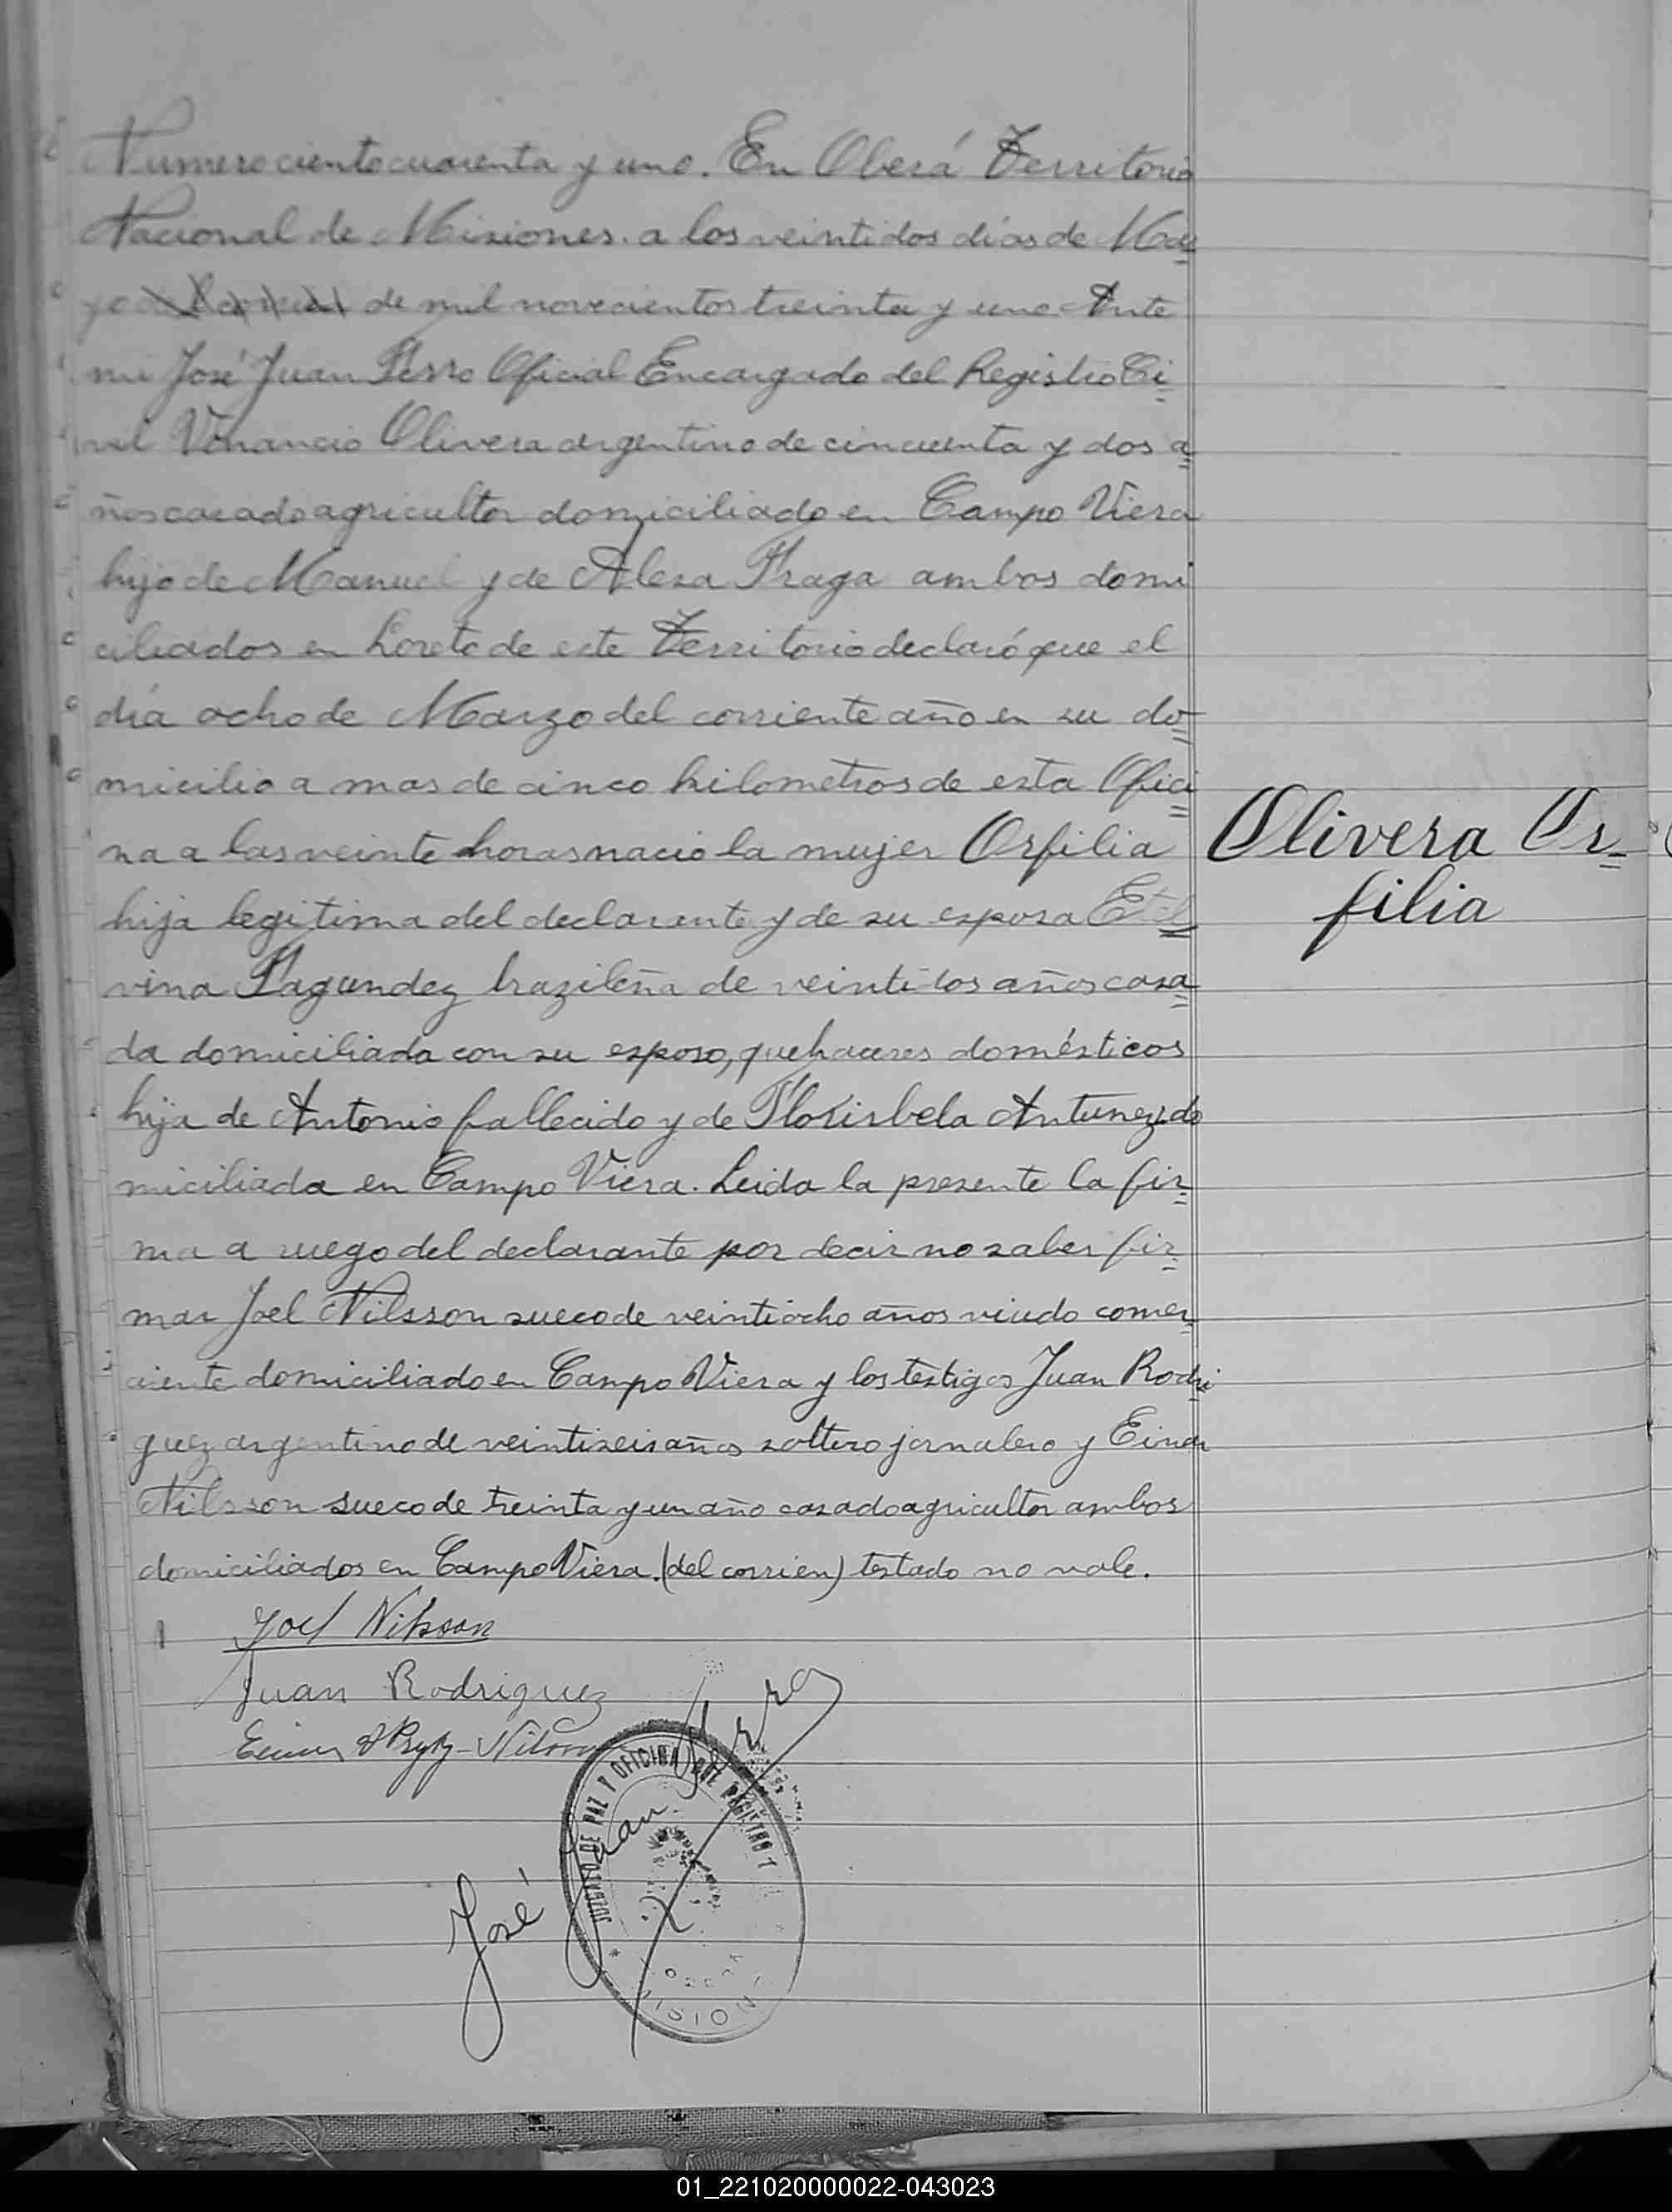 Numero ciento cuarenta y uno. En Oberá Territorio
Nacional de Misiones. a los veintidos días de Ma=
yo de mil novecientos treinta y uno Ante
mi José Juan Ferro Oficial Encargado del Registro Ci=
vil Venancio Olivera argentino de cincuenta y dos a=
ños casado agricultor domiciliado en Campo Viera
hijo de Manuel y de Alexa Fraga ambos domi
ciliados en Loreto de este Territorio declaró que el
día ocho de Marzo del corriente año en su do=
micilio a mas de cinco kilometros de esta Ofici=
na a las veinte horas nacio la mujer Orfilia
hija legitima del declarante y de su esposa Etel=
vina Fagundez brazileña de veintidos años casa=
da domiciliada con su esposo, quehaceres domésticos
hija de Antonio fallecido y de Florisbela Antunez do
miciliada en Campo Viera. Leida la presente la fir=
ma a ruego del declarante por decir no saber fir=
mar Joel Nilsson sueco de veintiocho años viudo comer=
ciente domiciliado en Campo Viera y los testigos Juan Rodri=
guez argentino de veintiseis años soltero jornalero y Einar
Nilsson sueco de treinta y un año casado agricultor ambos
domiciliados en Campo Viera. (del corrien) testado no vale.
Olivera Or=
filia
Joel Nilsson
Juan Rodriguez
José Juan Ferro
JUZGADO DE PAZ Y OFICINA DEL REGISTRO
01_221020000022-043023